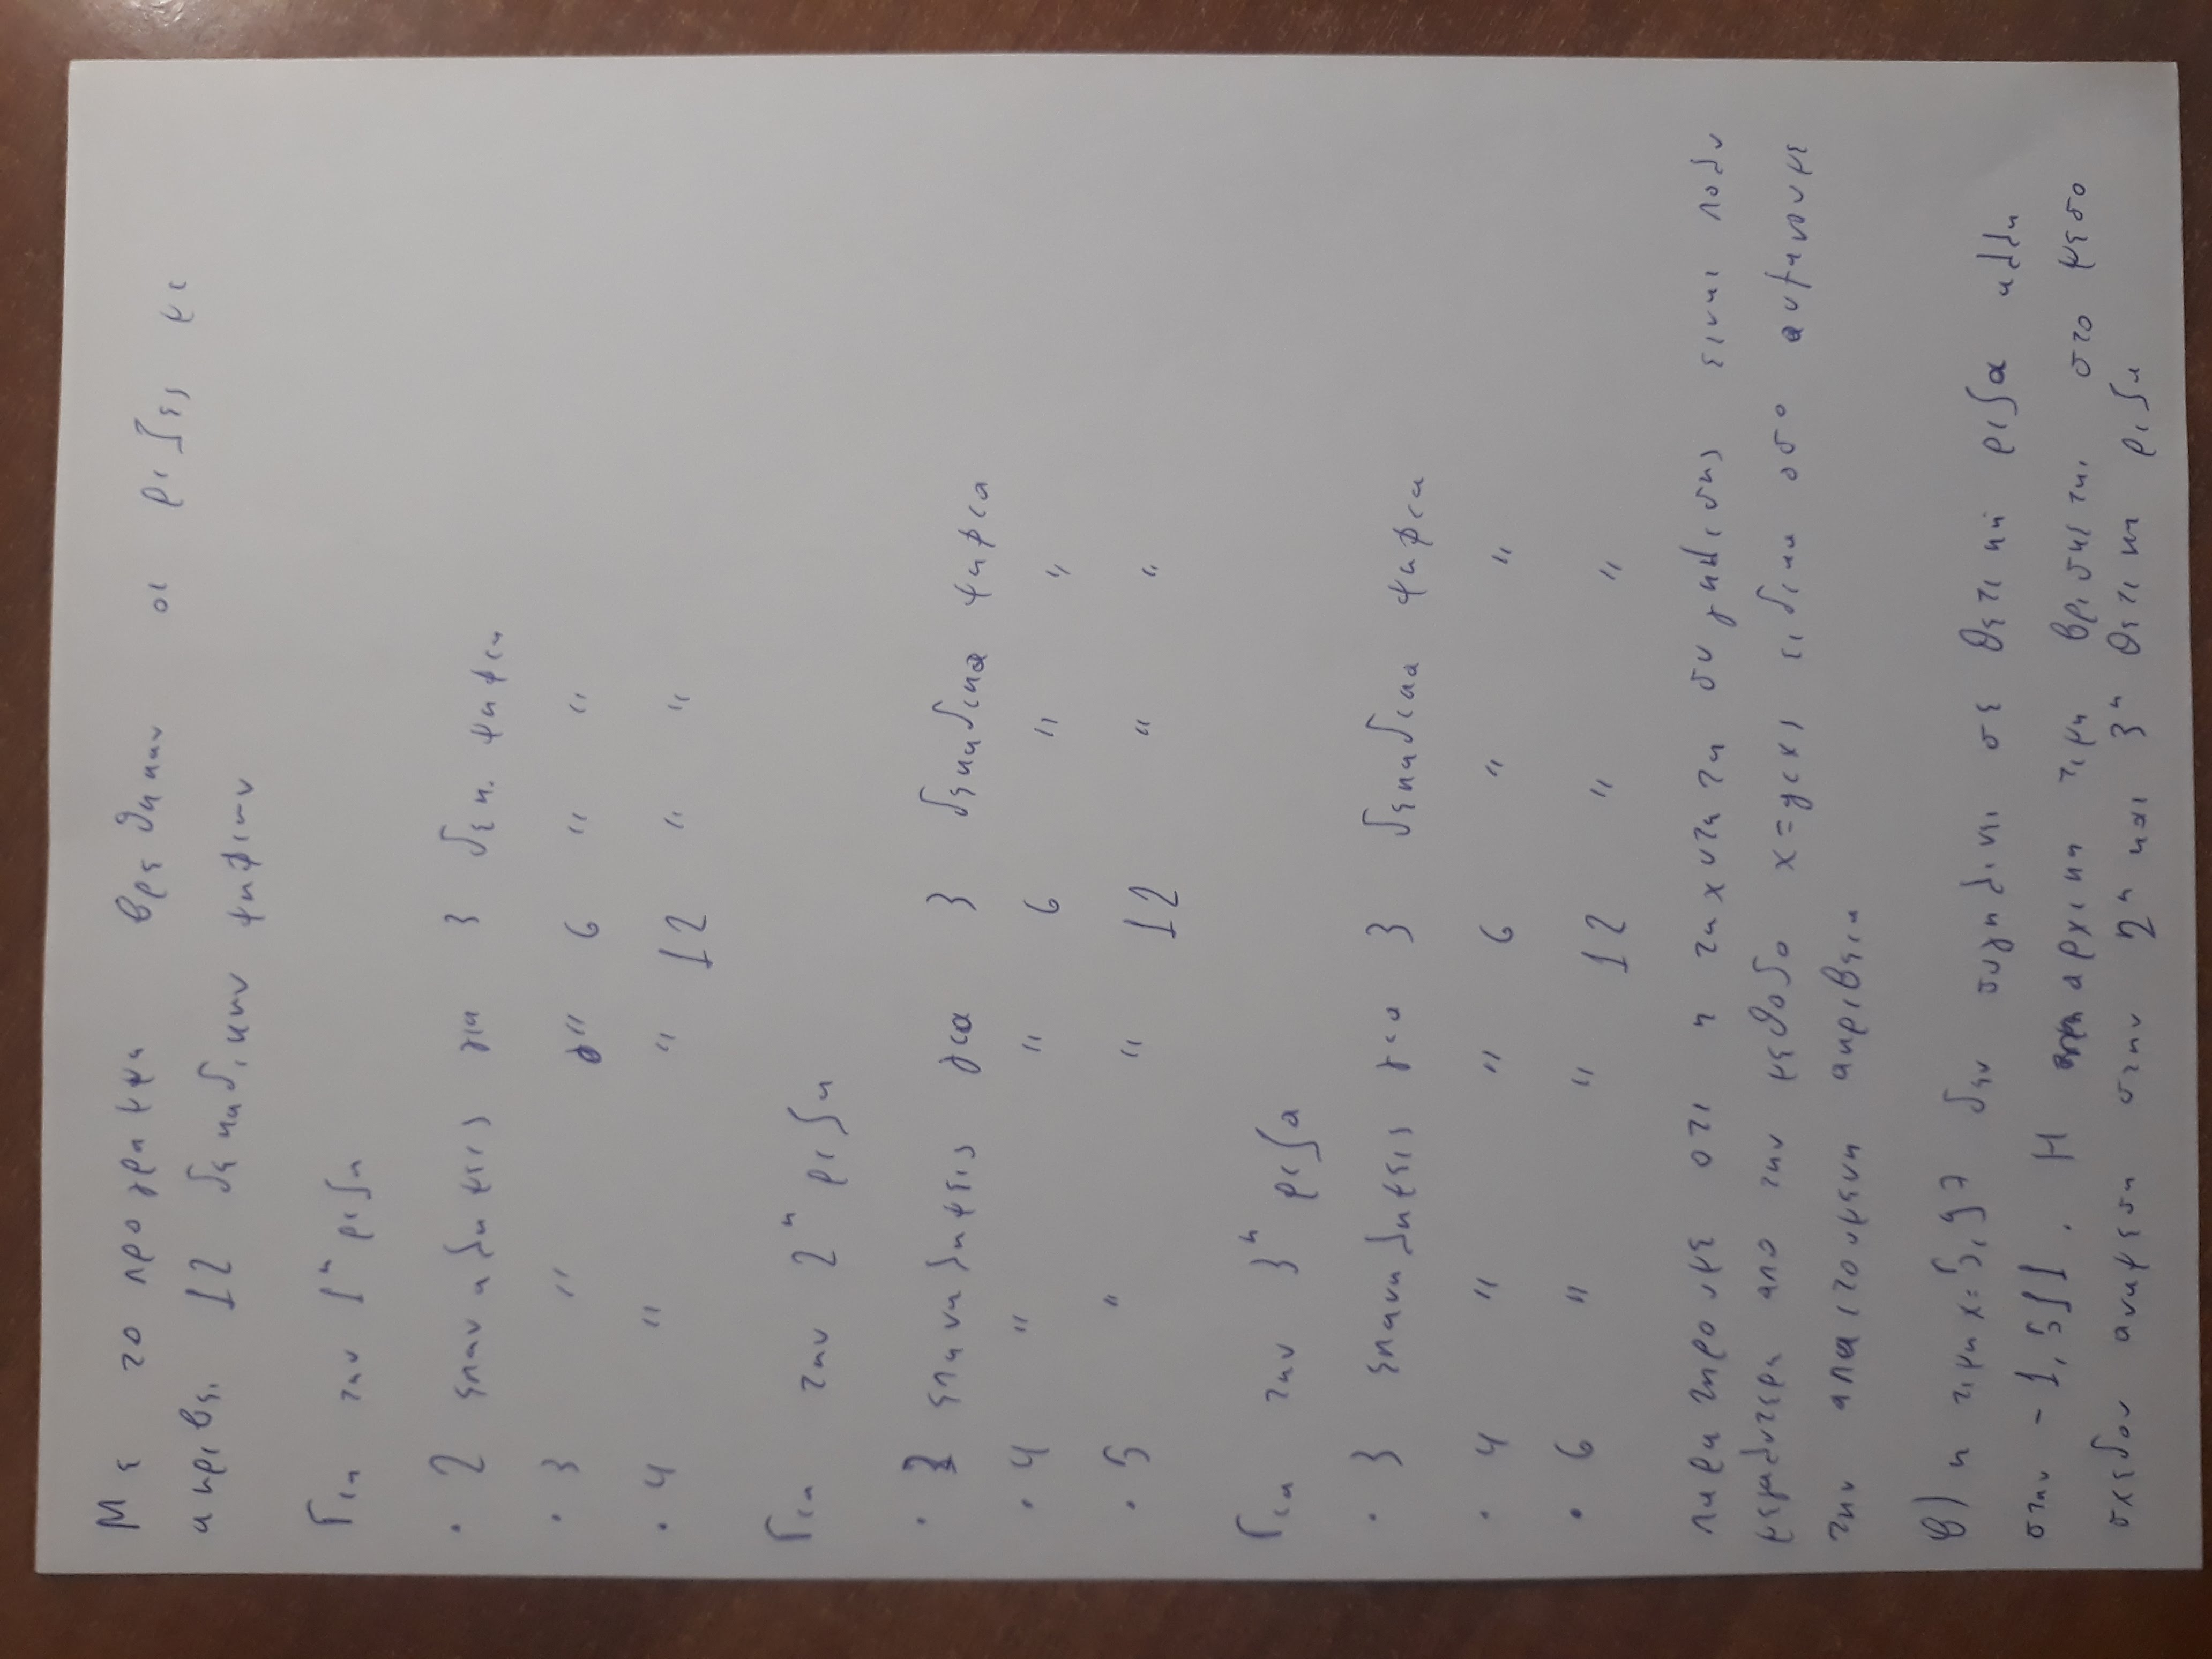 Με το προγραμμα βρεθηκαν οι ριζες με
ακριβει 12 δεκαδικων ψηφιων
Για την 1η ριζα
· 2 επαναληψεις για 3 δεκ. ψηφια
· 3 " " 6 " "
· 4 " " 12 " "
Για την 2η ριζα
· επαναληψεις για 3 δεκαδικα ψηφια
· 4 " " 6 " "
· 5 " " 12 " "
Για την 3η ριζα
· 3 επαναληψεις για 3 δεκαδικα ψηφια
· 4 " " 6 " "
· 6 " " 12 " "
παρατηρουμε οτι η ταχυτητα συγκλισης ειναι πολυ
μεγαλυτερη απο την μεθοδο x=g(x) ειδικα οσο αυξανουμε
την απαιτουμενη ακριβεια
β) η τιμη x=5,97 δεν συγκλινει σε θετικη ριζα αλλα
στην -1,511. Η αρχικη τιμη βρισκεται στο μεσο
σχεδον αναμεσα στην 2η και 3η θετικη ριζα